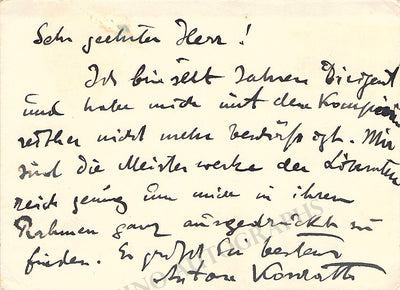 Sehr geehrter Herr!
Ich bin seit Jahren Dirigent
und habe mich mit dem Kompo
nicht mehr beschäftigt. Mir
sind die Meisterwerke der
reich genug um mich in ihrem
Rahmen ganz ausgedrückt zu
finden. Es grüßt Sie bestens
Anton Konrath